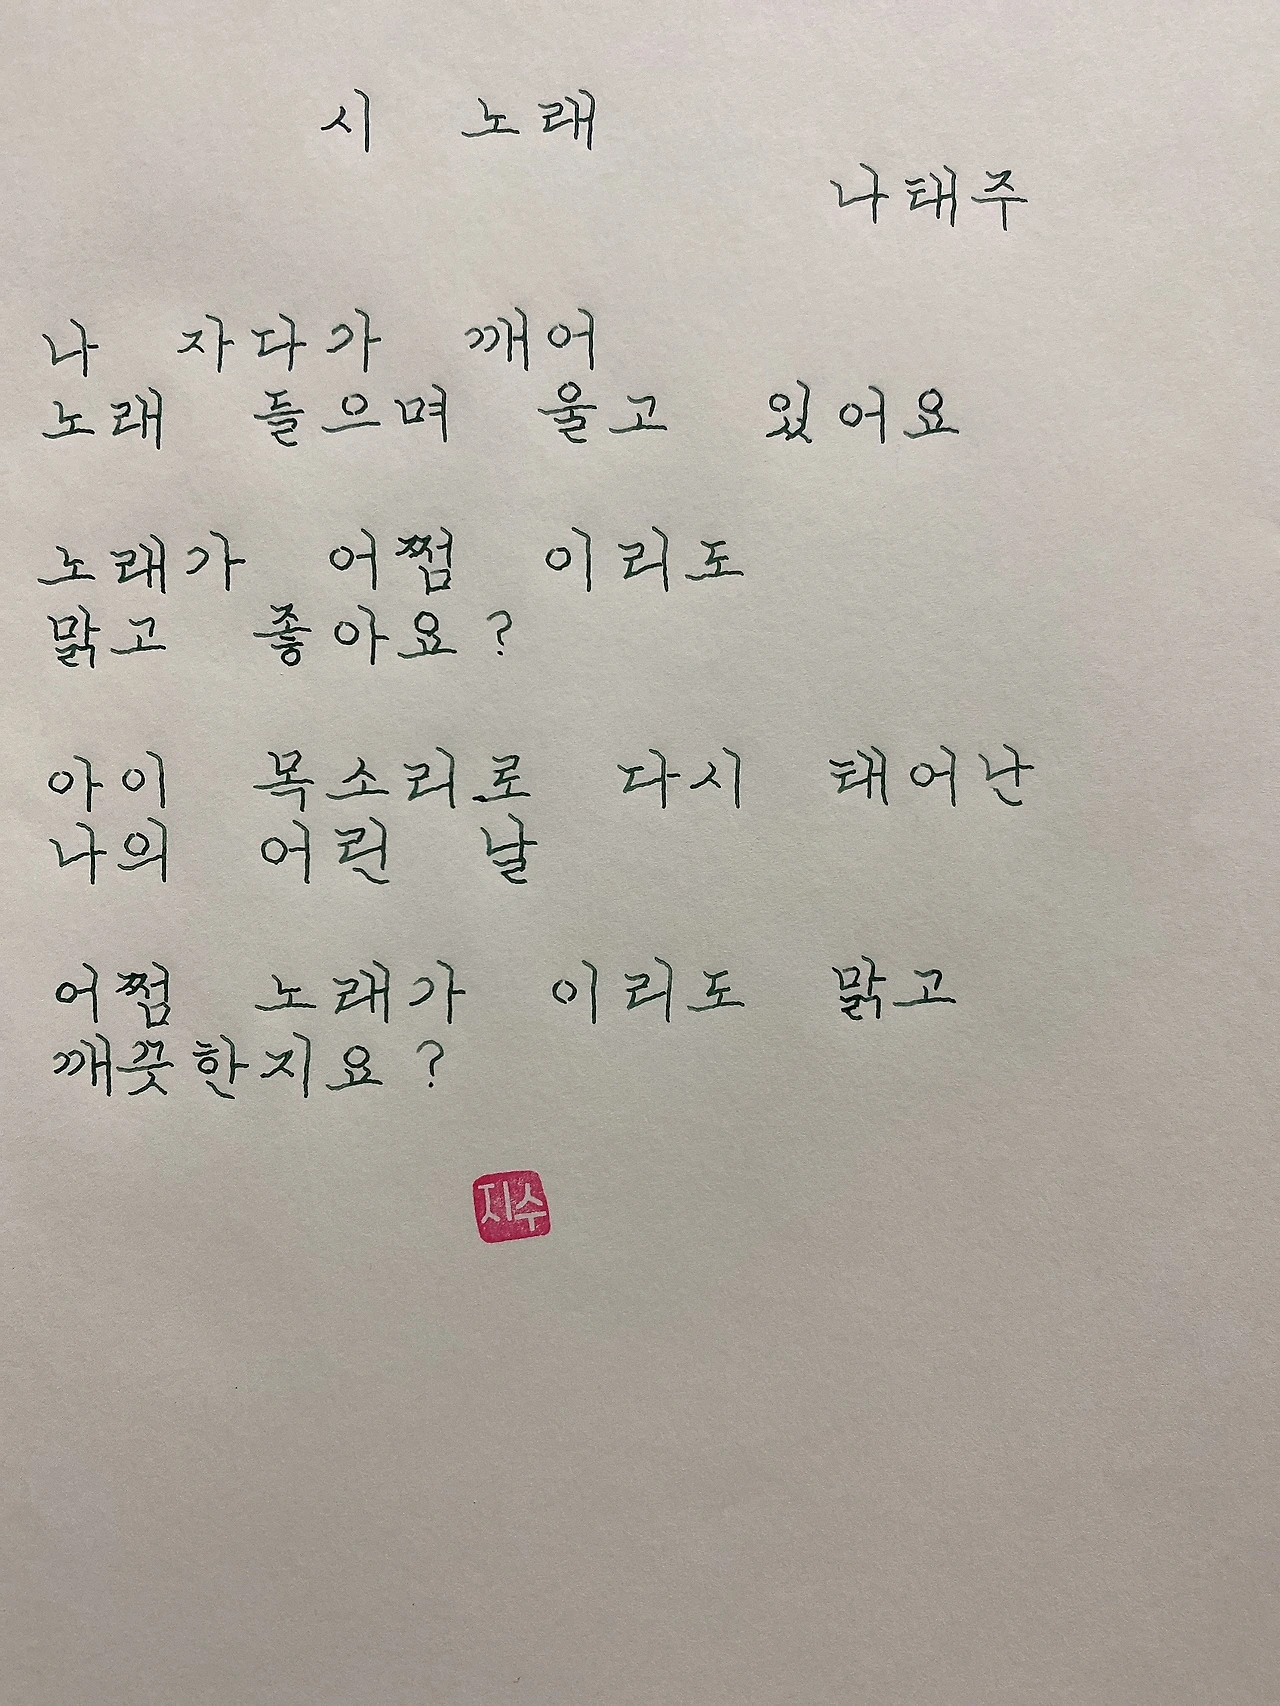 시 노래
나태주
나 자다가 깨어
노래 들으며 울고 있어요
노래가 어쩜 이리도
맑고 좋아요?
아이 목소리로 다시 태어난
나의 어린 날
어쩜 노래가 이리도 맑고
깨끗한지요?
지수